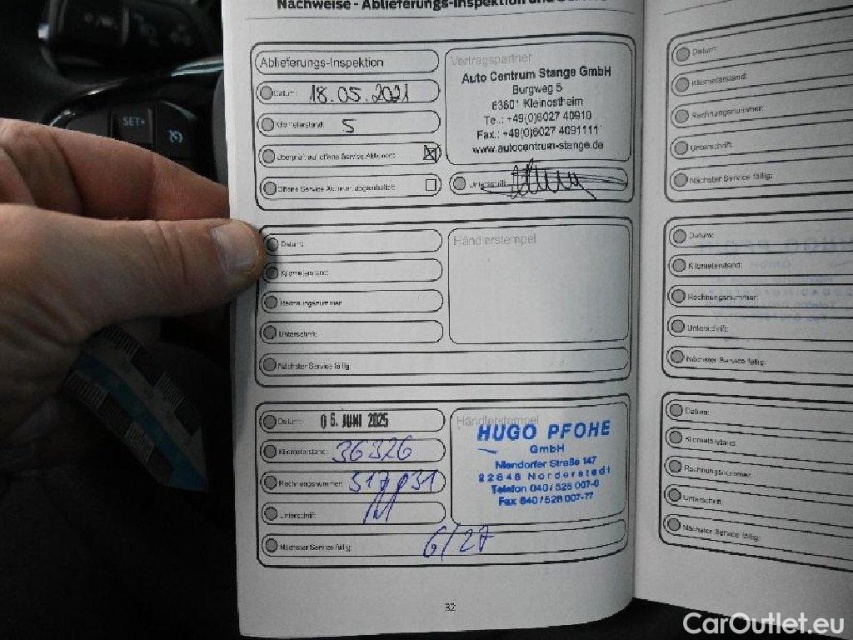 Nachweise - Ablieferungs-Inspektion und
Ablieferungs-Inspektion
Datum: 18.05.2021
Kilometerstand: 5
Überprüft auf offene Service Aktionen:
Offene Service Aktionen abgearbeitet:
Vertragspartner
Auto Centrum Stange GmbH
Burgweg 5
63801 Kleinostheim
Te.: +49(0)6027 40910
Fax.: +49(0)6027 4091111
www.autocentrum-stange.de
Unterschrift:
Datum:
Kilometerstand:
Rechnungsnummer:
Unterschrift:
Nächster Service fällig:
Händlerstempel
Datum: 06. JUNI 2025
Kilometerstand: 36326
Rechnungsnummer:
Unterschrift:
Nächster Service fällig: 6/27
Händlerstempel
HUGO PFOHE
GmbH
Niendorfer Straße 147
22848 Norderstedt
Telefon 040/526 007-0
Fax 040/526 007-77
32
Datum:
Kilometerstand:
Rechnungsnummer:
Unterschrift:
Nächster Service fällig:
Datum:
Kilometerstand:
Rechnungsnummer:
Unterschrift:
Nächster Service fällig:
Datum:
Kilometerstand:
Rechnungsnummer:
Unterschrift:
Nächster Service fällig:
SET+
CarOutlet.eu